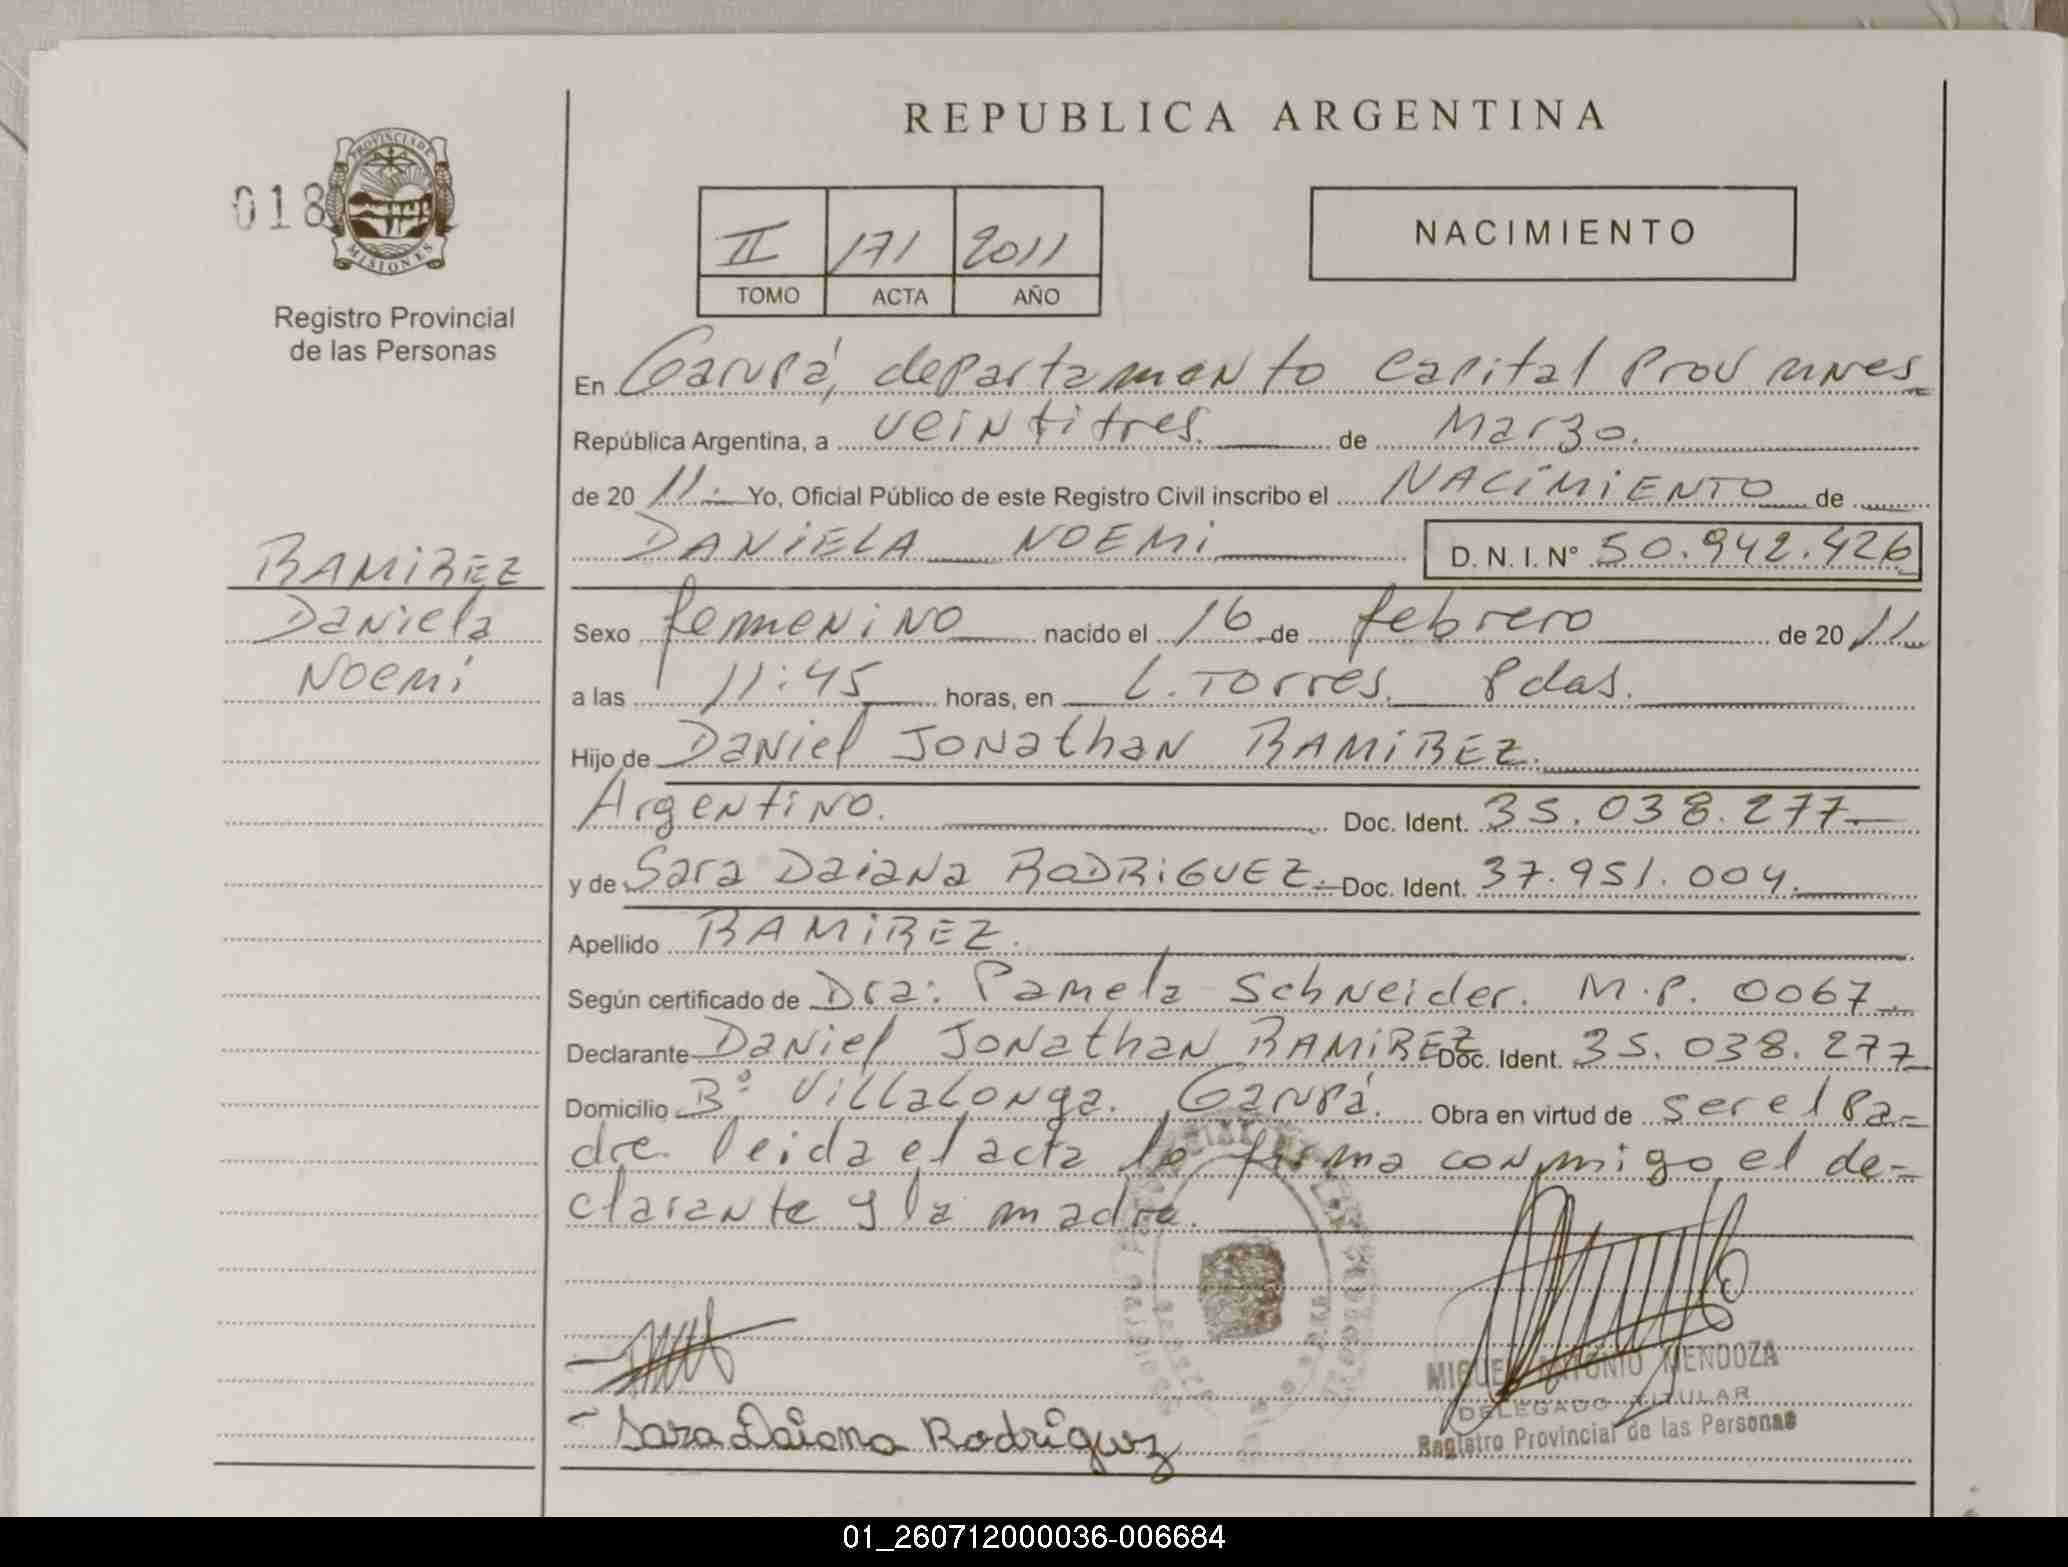 REPUBLICA ARGENTINA
018
PROVINCIA DE
MISIONES
Registro Provincial
de las Personas
II 171 2011
TOMO ACTA AÑO
NACIMIENTO
En Garupá, departamento Capital Prov mnes
República Argentina, a veintitres de Marzo.
de 20 11. Yo, Oficial Público de este Registro Civil inscribo el NACIMIENTO de
DANIELA NOEMI D. N. I. Nº 50.942.426
RAMIREZ
Daniela
Noemi
Sexo femenino nacido el 16 de febrero de 20 11
a las 11:45 horas, en L. Torres. Pdas.
Hijo de Daniel Jonathan RAMIREZ.
Argentino. Doc. Ident. 35.038.277
y de Sara Daiana RODRIGUEZ. Doc. Ident. 37.951.004.
Apellido RAMIREZ.
Según certificado de Dra: Pamela Schneider. M.P. 0067
Declarante Daniel Jonathan RAMIREZ Doc. Ident. 35.038.277
Domicilio Bº Villalonga. Garupá. Obra en virtud de ser el Pa-
dre leida el acta la firma conmigo el de-
clarante y la madre.
Sara Daiana Rodríguez
MIGUEL ANTONIO MENDOZA
DELEGADO TITULAR
Registro Provincial de las Personas
01_260712000036-006684